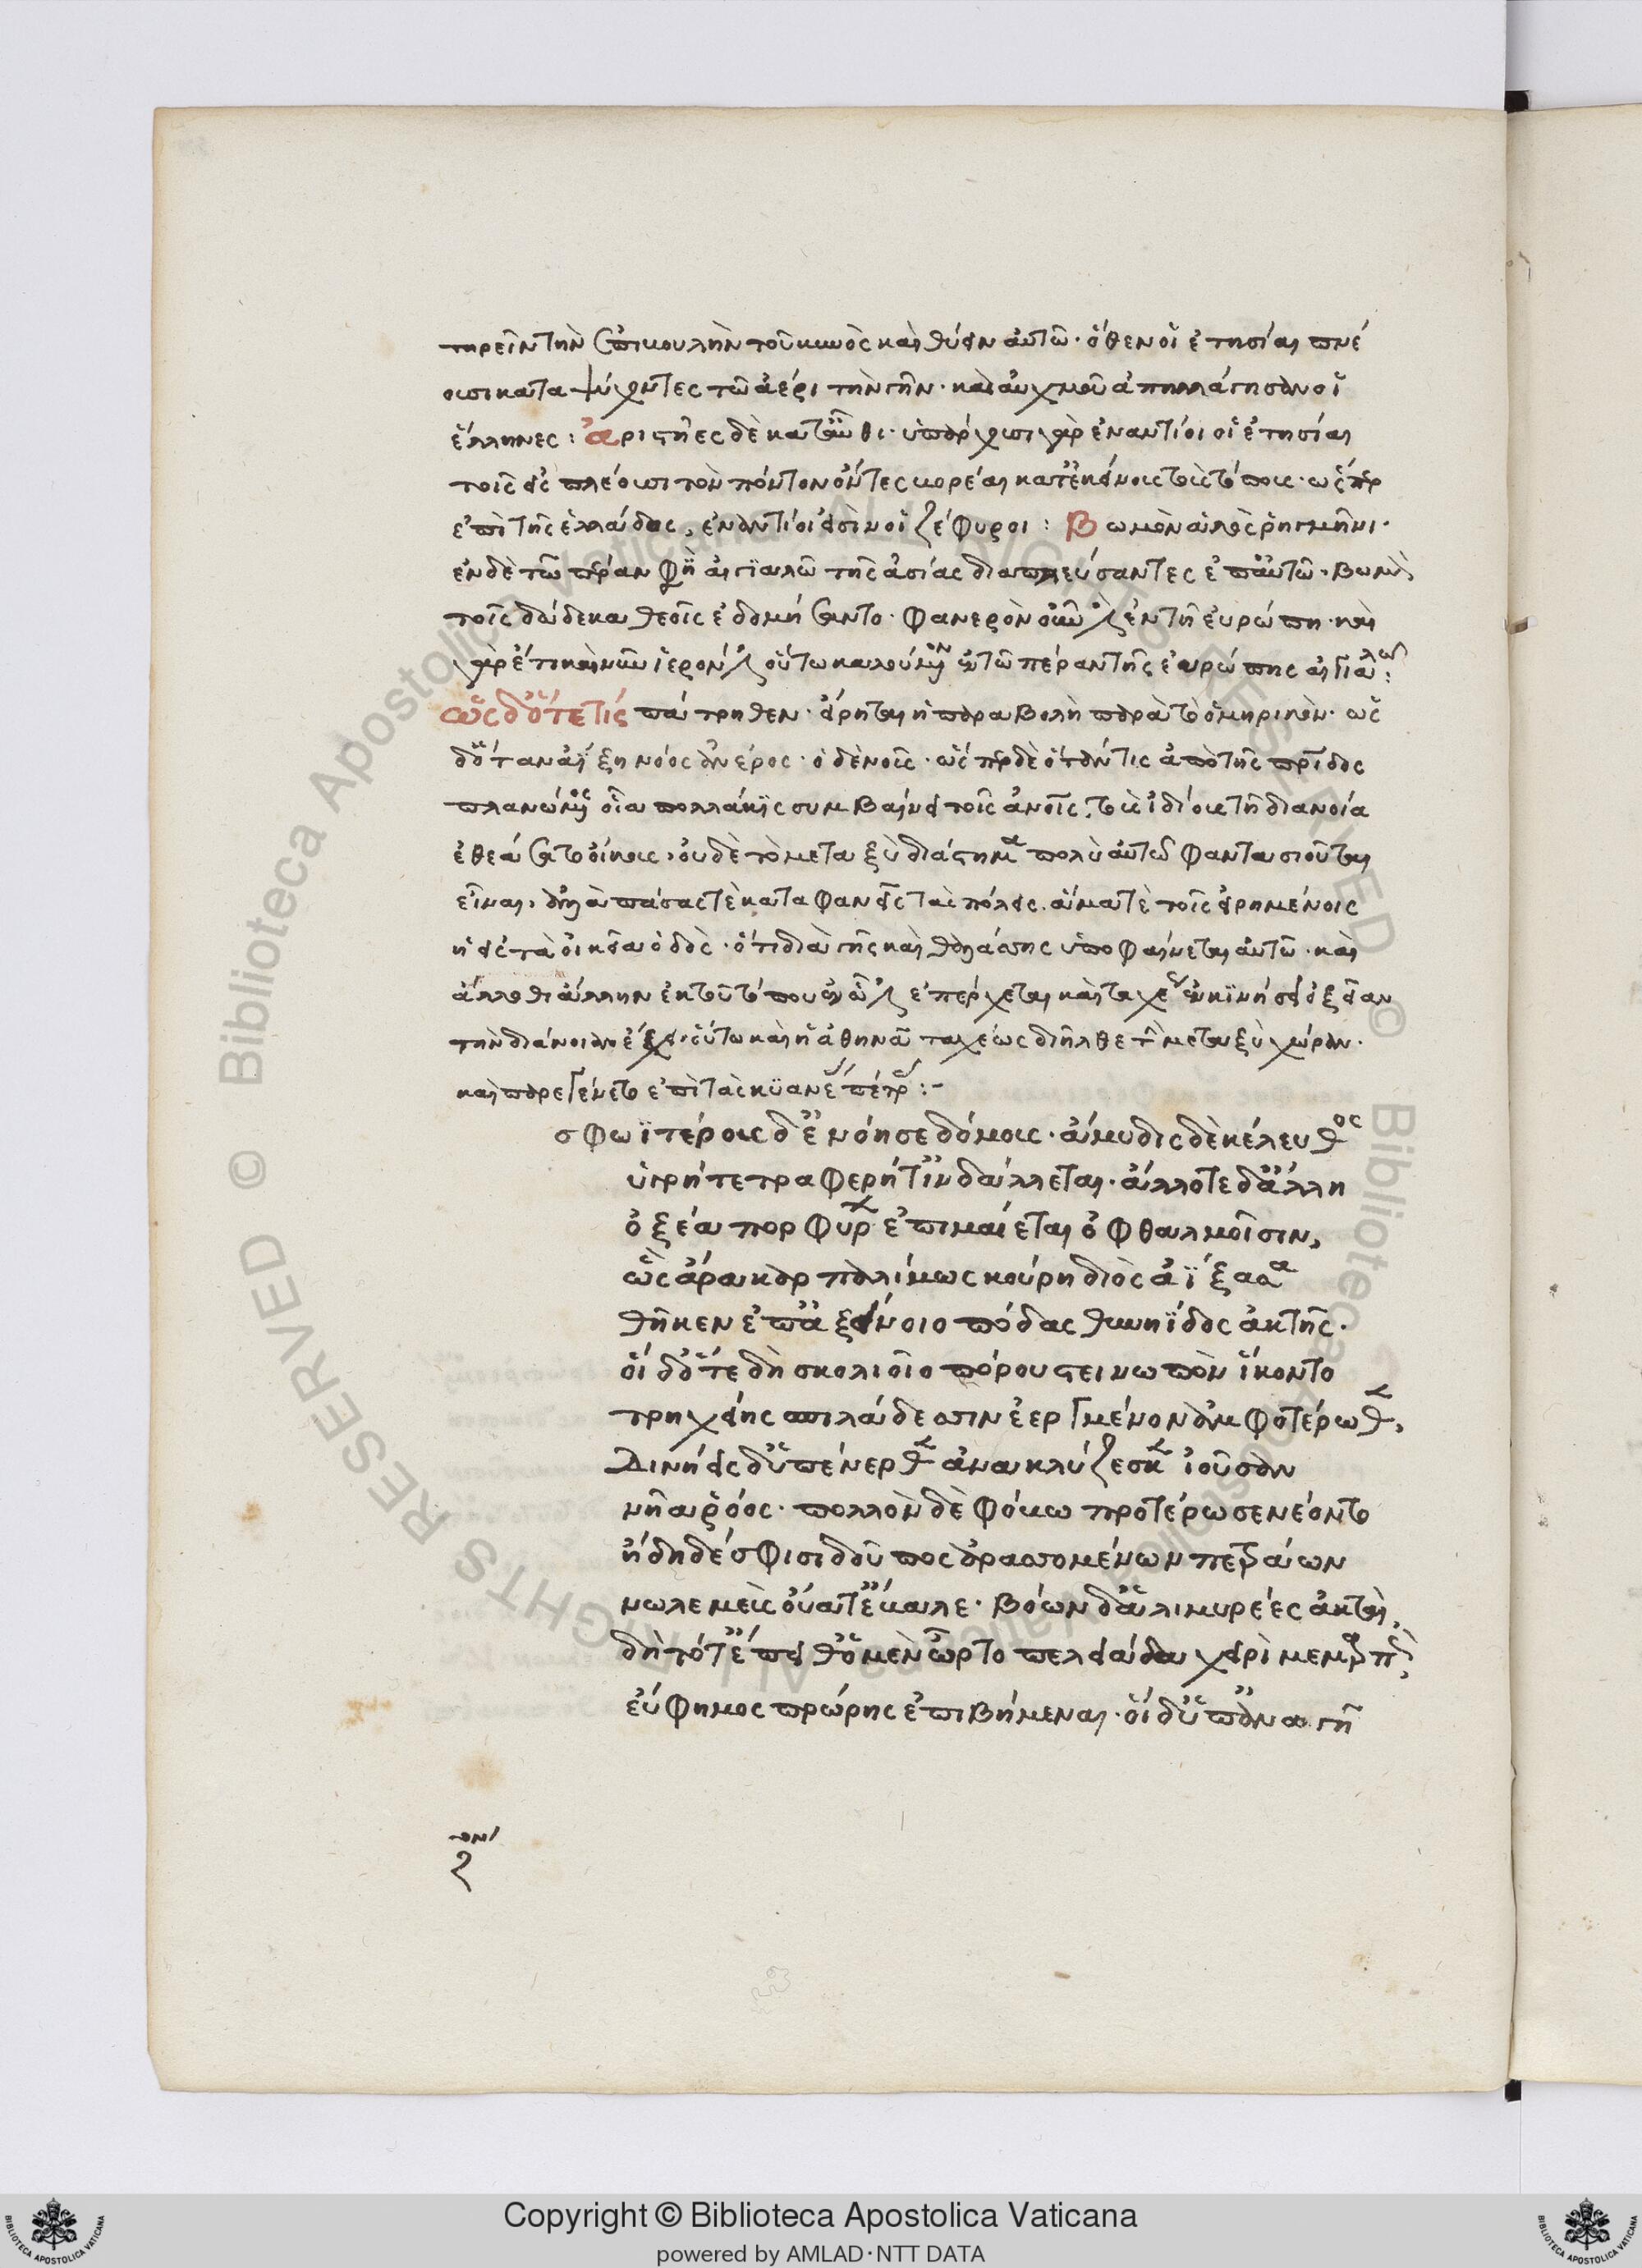 τηρεῖν τὴν ἐπιτολὴν τοῦ κυνὸς καὶ θύειν αὐτῶ· ὅθεν οἱ ἐτησίαι πνέ
ουσι καταψύχοντες τῶ ἀέρι τὴν γῆν· καὶ αὐχμοῦ ἀπηλλάγησαν οἱ
ἕλληνες: ἀριστῆες δὲ καταῦθι· ὑπάρχουσι γὰρ ἐναντίοι οἱ ἐτησίαι
τοῖς εἰς πλέουσι τὸν πόντον ὄντες βορέαι κατ' ἐκείνοις τοῖς τόποις· ὥσπερ
ἐπὶ τῆς ἑλλάδος, ἐναντίοι εἰσὶν οἱ ζέφυροι: Βωμὸν ἁλὸς ῥηγμῖνι·
ἐν δὲ τῶ πέραν φησὶ αἰγιαλῶ τῆς ἀσίας διαπλεύσαντες ἐπ' αὐτῶ· βωμὸν
τοῖς δώδεκα θεοῖς ἐδομήσαντο· φανερὸν οὖν ὅτι ἐν τῆ εὐρώπη· καὶ
γὰρ ἔτι καὶ νῦν ἱερόν ἐστι οὕτω καλούμενον ἐν τῶ πέραν τῆς εὐρώπης αἰγιαλῶ:
ὡς δ' ὅτε τίς πάτρηθεν· εἴρηται ἡ παραβολὴ παρὰ τὸ ὁμηρικὸν· ὡς
δ' ὅταν ἀίξη νόος ἀνέρος· ὁ δὲ νοῦς· ὥσπερ δὲ ὅταν τις ἀπὸ τῆς πατρίδος
πλανώμενος οἷα πολλάκις συμβαίνει τοῖς ἀνοις, τοῖς ἰδίοις τῆ διανοία
ἐθεάσατο οἴκοις, οὐδὲ τὸ μεταξὺ διάστημα πολὺ αὐτῶ φαντασιοῦται
εἶναι, ἀλλὰ πάσας τὲ καταφανεῖς τὰς πόλεις. ἅμα τὲ τοῖς εἰρημένοις
ἡ εἰς τὰ οἰκεῖα ὁδὸς· ὅτι διὰ γῆς καὶ θαλάσσης ὑποφαίνεται αὐτῶ· καὶ
ἄλλοθι ἄλλην ἐκ τοῦ τόπου ἐν ᾧ ἐστι ἐπέρχεται καὶ ταχεῖαν ἐν κινήσει ὀξεῖαν
τὴν διάνοιαν ἔχει. οὕτω καὶ ἡ ἀθηνᾶ ταχέως διῆλθε τὴν μεταξὺ χώραν·
καὶ παρεγένετο ἐπὶ τὰς κυανέας πέτρας:-
σφωϊτέρους δ' ἐνόησε δόμους· ἄμυδις δὲ κέλευθος
ὑγρήτε τραφερήτ' ἰνδάλλεται· ἄλλοτε δ' ἄλλη
ὀξέα πορφύρων ἐπιμαίεται ὀφθαλμοῖσιν,
ὣς ἄρα καρπαλίμως κούρη διὸς ἀΐξασα
θῆκεν ἐπ' ἀξείνοιο πόδας θυνηΐδος ἀκτῆς·
οἱ δ' ὅτε δὴ σκολιοῖο πόρου στεινωπὸν ἵκοντο
τρηχείης σπιλάδεσσιν ἐεργμένον ἀμφοτέρωθεν,
Δινήεις δ' ὑπένερθεν ἀνακλύζεσκεν ἰοῦσαν
νῆα ῥόος· πολλὸν δὲ φόβω προτέρωσε νέοντο
ἤδη δέ σφισι δοῦπος ἀρασσομένων πετράων
νωλεμὲς οὔατ' ἔβαλε· βόων δ' ἁλιμυρέες ἀκταὶ,
δὴ τότ' ἔπειθ' ὁ μὲν ὦρτο πελειάδα χειρὶ μεμαρπὼς,
εὔφημος πρώρης ἐπιβήμεναι· οἱ δ' ὑπ' ἀνωγῆ